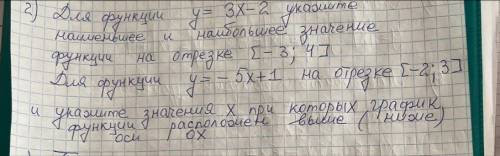 2) Для функции y= 3x-2 укажите
наименьшее и наибольшее значение
функции на отрезке [-3; 4]
Для функции y=-5x+1 на отрезке [-2;3]
и укажите значения x при которых график
функции расположен выше (ниже)
оси ох